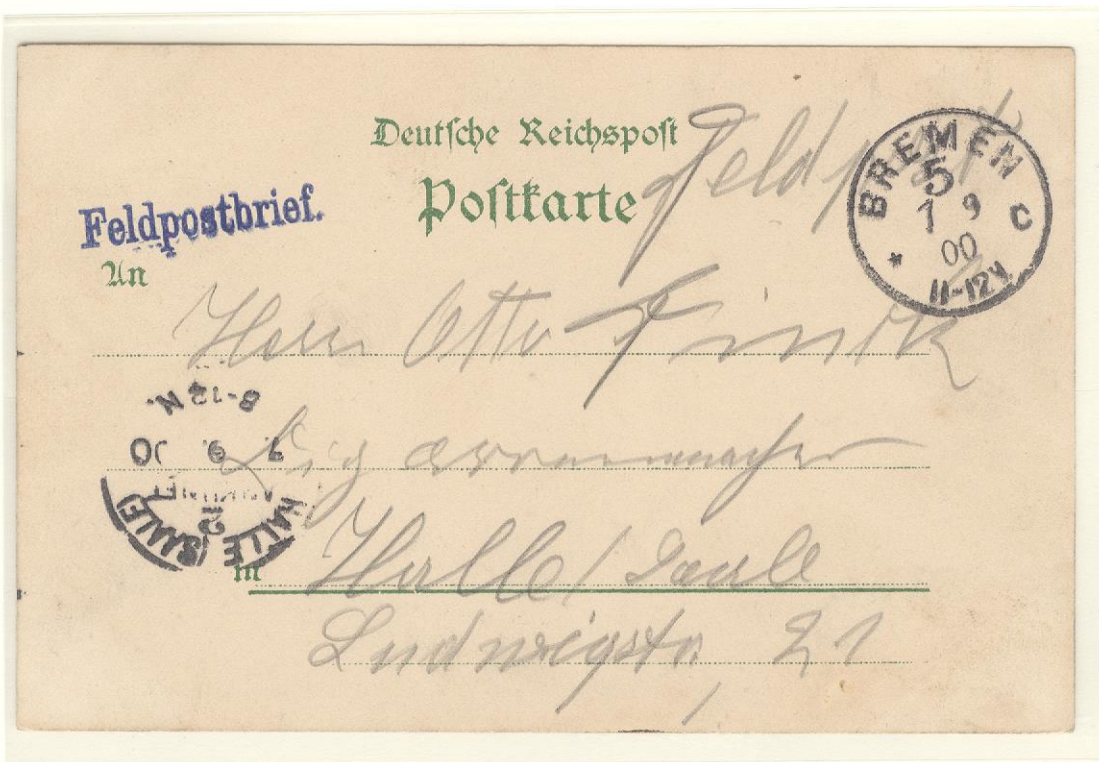 Deutsche Reichspost
Postkarte
Feldpost
Feldpostbrief.
BREMEN
5
1 9
00
11-12V
* C
An
Herrn Otto Finck
8-12 N.
9. 00
HALLE (SAALE)
2
in Halle/Saale
Ludwigstr. 21